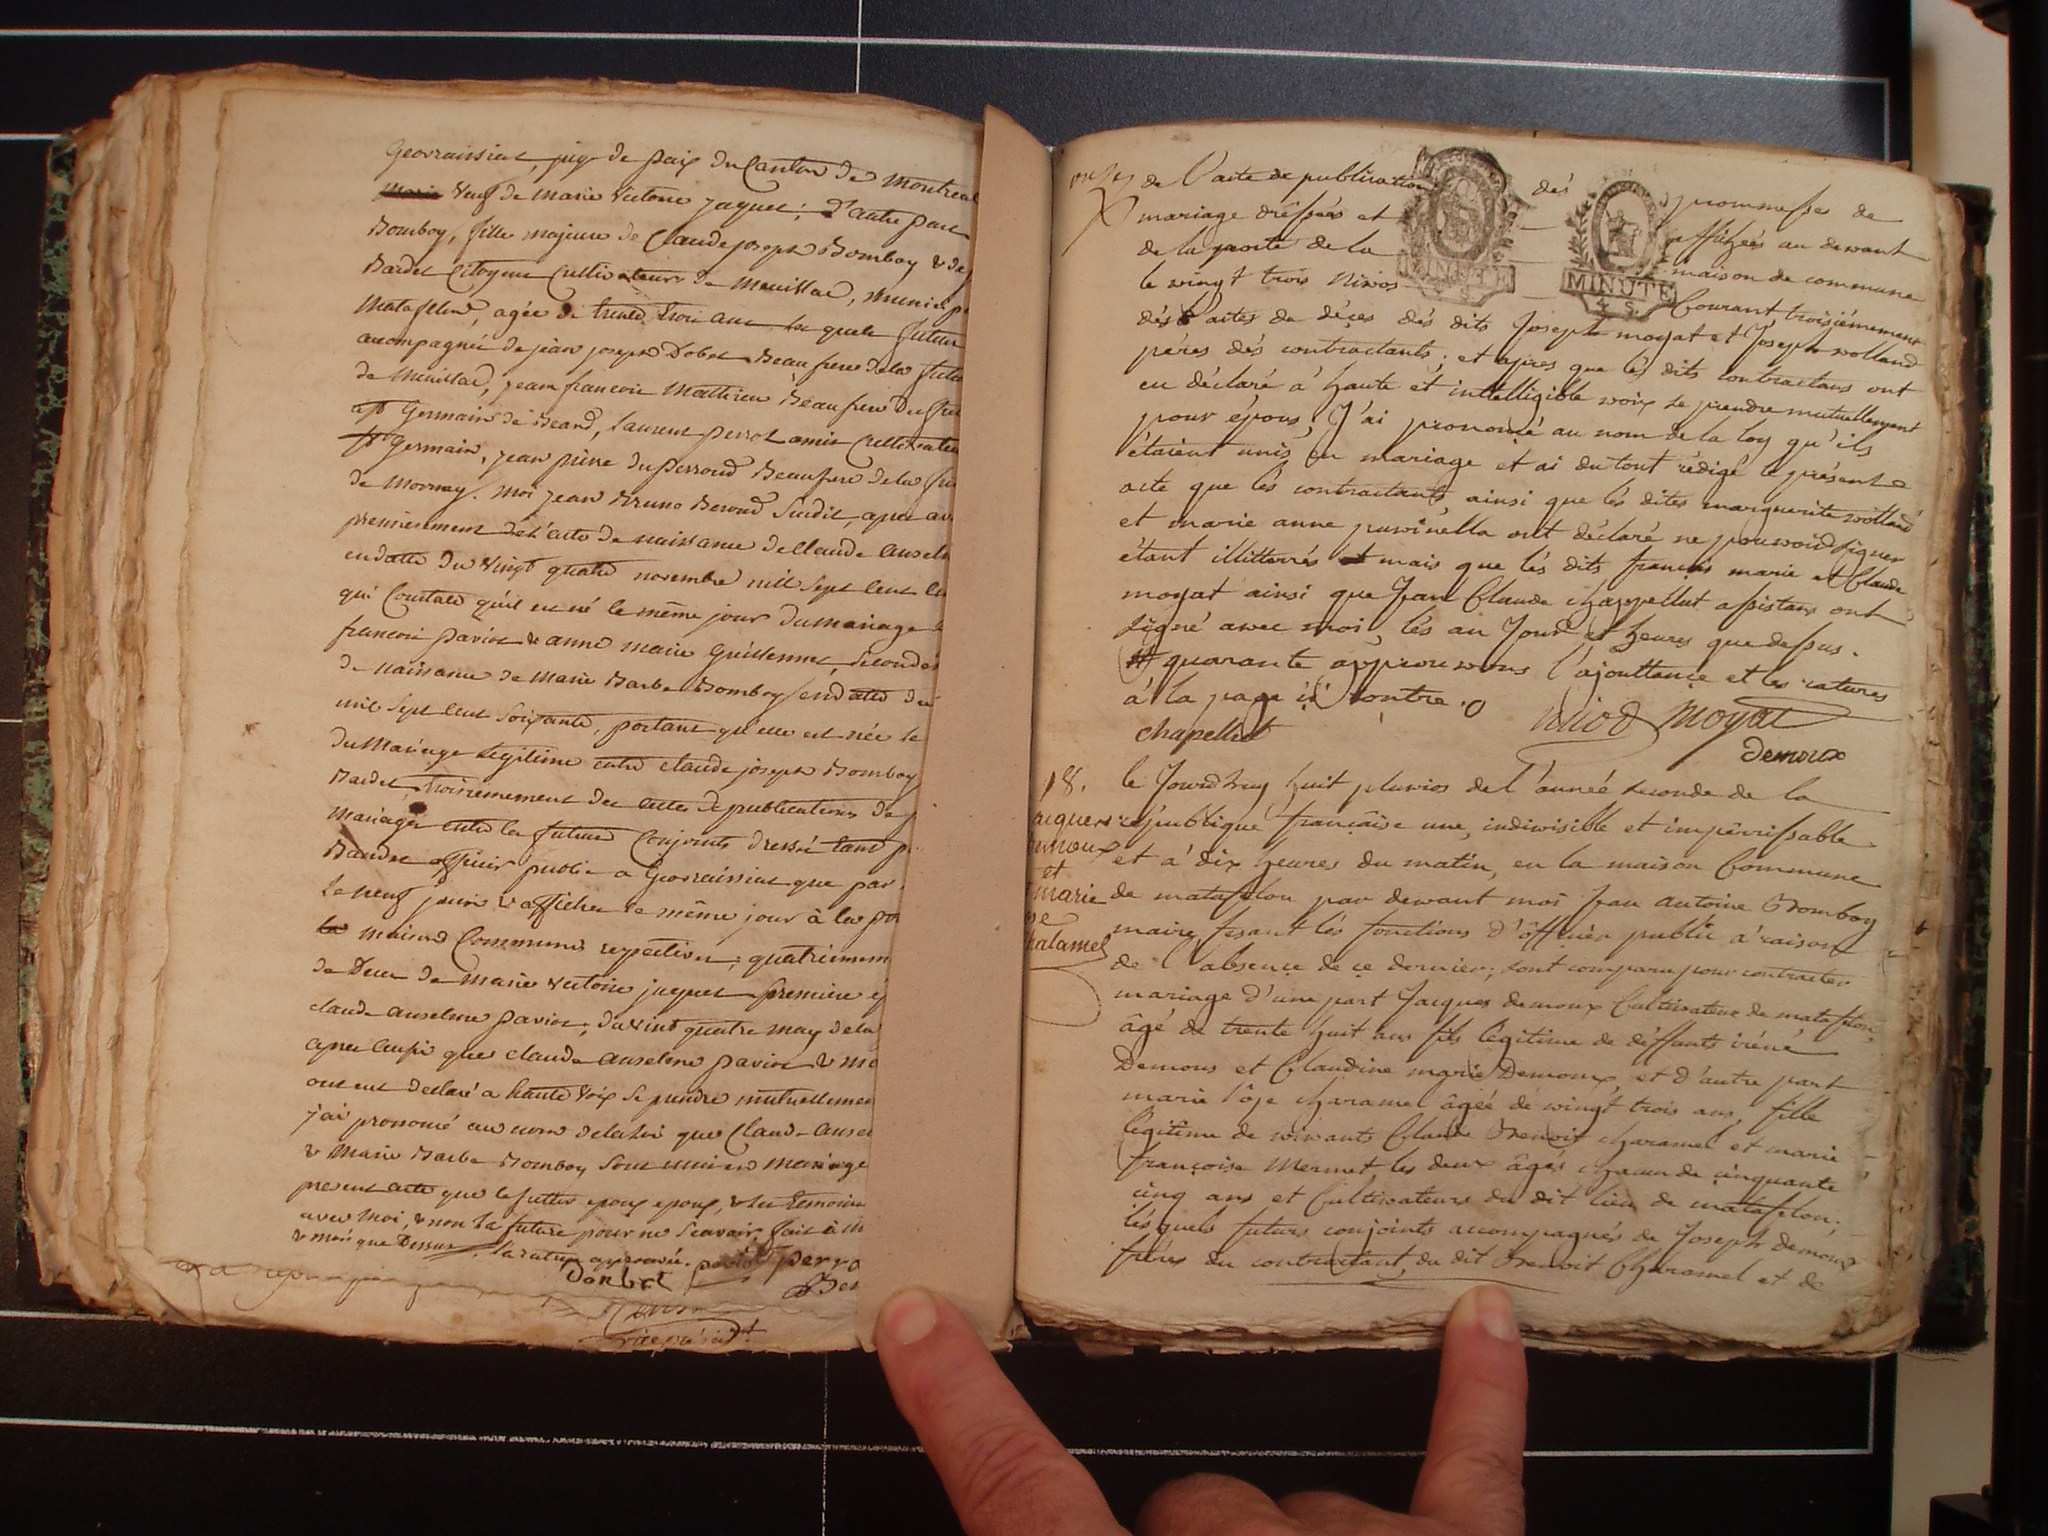 Georraissiat, juge de paix du Canton de Montreal
veuf de Marie Victoire jaques; d'autre part
Bomboy, fille majeure de Claude joseph Bomboy & de
Bardet Citoyens Cultivateurs de Meuillat, municip
Matafelon, agée de trente trois ans les quels futur
accompagnés de jean joseph Dobet Beaufrere de la futu
de Meuillat, jean francois Mathieu Beaufrere du fu
st Germain de Beard, laurent perrot amis Cultivateu
st Germain, jean pierre du perroud Beaufrere de la fu
de Mornay. Moi jean Bruno Beroud Susdit, apres av
premierement de l'acte de naissance de Claude anselm
en datte du vingt quatre novembre mill sept cent
qui Constate qu'il est né le même jour du mariage
francois pavios & anne marie Guillermet, secondem
de naissance de Marie Barbe Bomboy en datte du
mil sept cent soixante, portant qu'elle est née le
du Mariage legitime entre claude joseph Bomboy
Bardet, troisiemement des actes de publications de
Mariages entre les futurs Conjoints dressé tant p
Baudet officier public a Georraissiat que par
le neuf juin & afficher le même jour à la por
la maison Commune respective; quatriemem
de Deces de Marie Victoire jaques premiere
claude anselme pavios, du vint quatre may de la
apres aussi que claude anselme pavios & ma
ont eut declaré a haute voix se prendre mutuellemen
j'ai prononcé au nom de la loi que Claude anse
& Marie Barbe Bomboy sont unis en mariage
present acte que le futur epoux & les temoins
avec Moi, & non la future pour ne scavoir, fait à
& moi que Dessus. la rature approuvée. perro
Dorbet Ber
de l'acte de publication dés promesses de
mariage dréssées et affichées au devant
de la porte de la maison de commune
le vingt trois Nivos Courant, troisiémement
MINUTE
4 S.
MINUTE
4 S.
dés actes de déçes dés dits Joseph moyat et Joseph volland
péres dés contractants; et apres que lés dits contractans ont
eu déclaré à haute et intelligible voix se prendre mutuellement
pour époux, J'ai prononcé au nom de la loy qu'ils
étaient unis en mariage et ai du tout rédigé le présent
acte que lés contractants ainsi que lés dites marguerite volland
et marie anne puvinella ont déclaré ne pouvoir signer
étant illitterés mais que lés dits françois marie et Claude
moyat ainsi que Jean Claude chappellut assistans ont
signé avec moi, lés an Jour et heures que dessus.
quarante approuvons l'ajouttance et les ratures
à la page ci contre.
chapellut Niod Moyat
Demoux
18.
jacques
demoux
et
marie
Charamel
le Jourdhuy huit pluvios de l'année seconde de la
république française une, indivisible et impérissable
et à dix heures du matin, en la maison Commune
de matafelon par devant moi Jean Antoine Bomboy
maire, fesant lés fonctions d'officier public à raison
de l'absence de ce dernier; sont comparu pour contracter
mariage d'une part Jacques demoux Cultivateur de matafelon
âgé de trente huit ans fils légitime de déffunts iréné
Demous et Claudine marie Demoux, et d'autre part
marie lôse charamel âgéé de vingt trois ans, fille
légitime de vivants Claude Benoit charamel et marie
françoise Mermet les deux âgés chacun de cinquante
cinq ans et Cultivateurs du dit lieu de matafelon;
lésquels futurs conjoints accompagnés de Joseph demoux
fréres du contractant, du dit Benoit Charamel et de